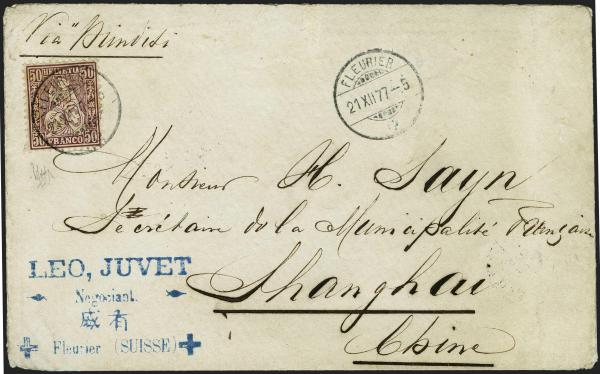 Via Brindisi
50 HELVETIA 50
50 FRANCO 50
FLEURIER
21 XII 77 - 5
Monsieur H. Sayn
Secrétaire de la Municipalité Française
Shanghai
Chine
LEO, JUVET
Negociant.
威有
Fleurier (SUISSE)